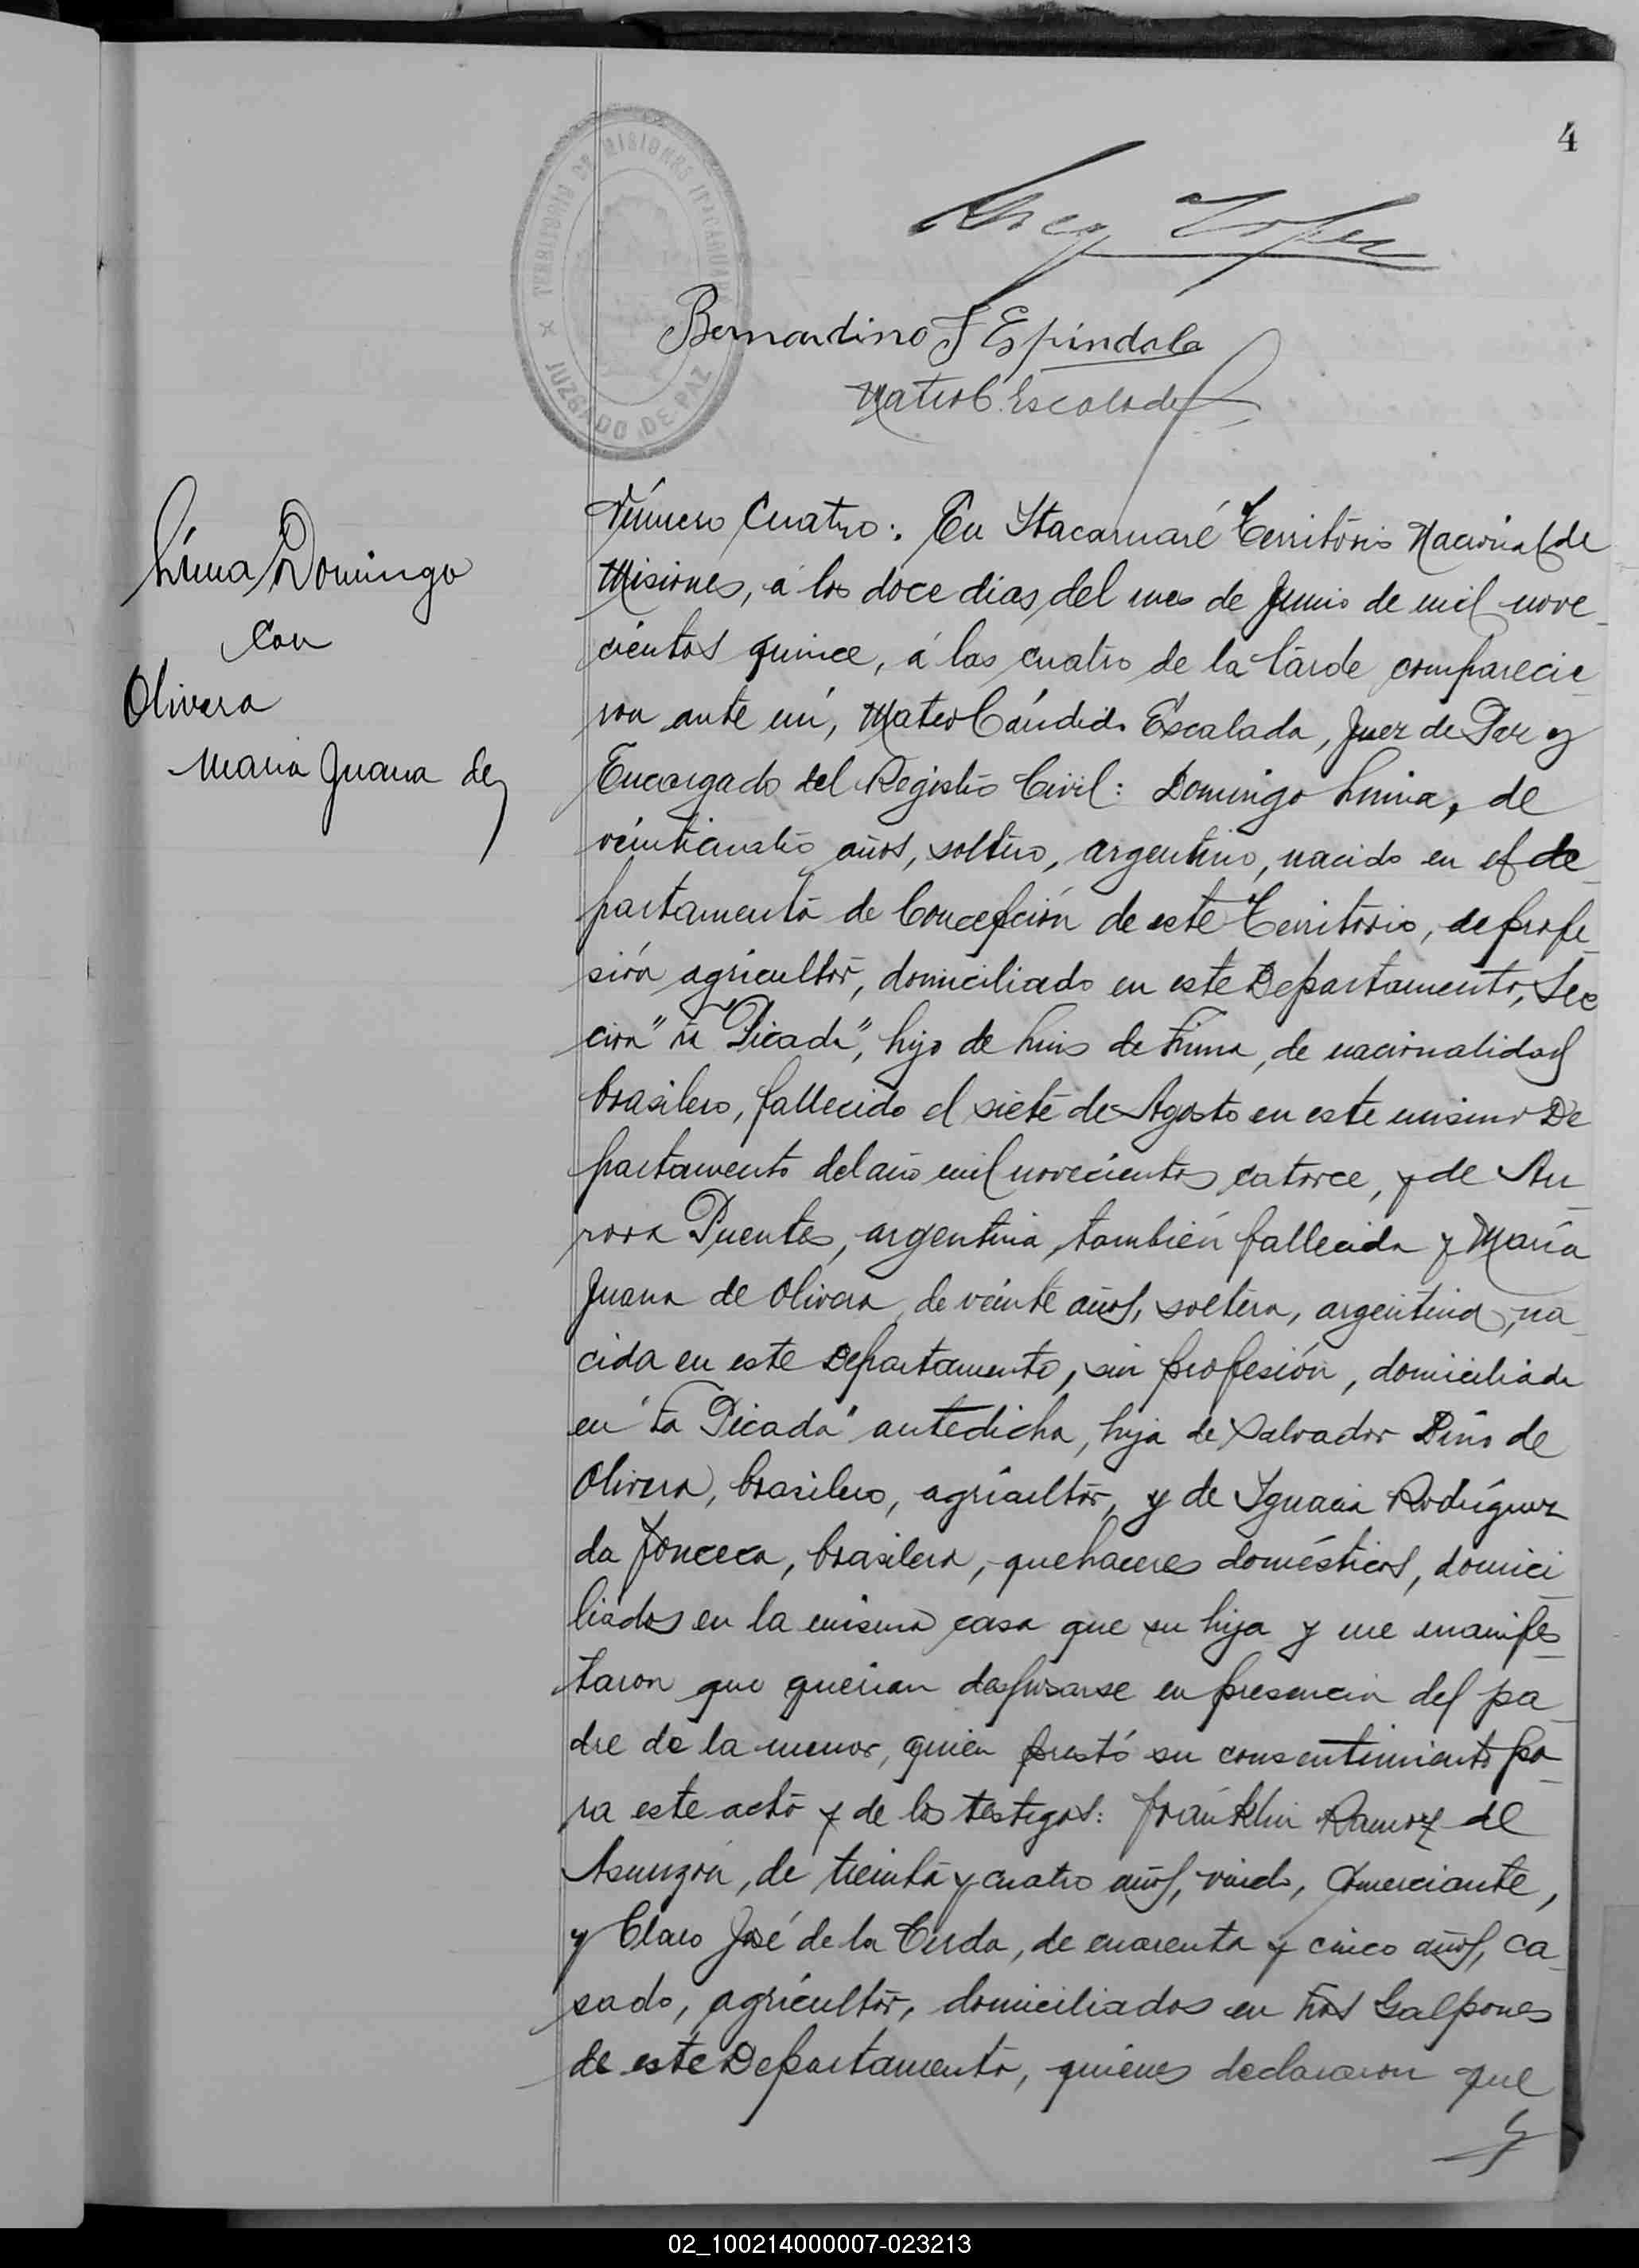 4
TERRITORIO DE MISIONES ITACARUARÉ
JUZGADO DE PAZ
Greg Lopez
Bernardino F Espindola
Mateo C. Escalada
Lima Domingo
con
Olivera
Maria Juana de
Número Cuatro: En Itacaruaré Território Nacional de
Misiones, á los doce dias del mes de Junio de mil nove-
cientos quince, á las cuatro de la tarde comparecie-
ron ante mí, Mateo Cándido Escalada, Juez de Paz y
Encargado del Registro Civil: Domingo Lima, de
veinticuatro años, soltero, argentino, nacido en el de-
partamento de Concepción de este Territorio, de profe-
sión agricultor, domiciliado en este Departamento, Sec
cion "La Picada", hijo de Luis de Lima, de nacionalidad
brasilero, fallecido el siete de Agosto en este mismo De
partamento del año mil novecientos catorce, y de Au-
rora Puentes, argentina, también fallecida y María
Juana de Olivera, de veinte años, soltera, argentina, na-
cida en este Departamento, sin profesión, domiciliada
en "La Picada" antedicha, hija de Salvador Dino de
Olivera, brasilero, agricultor, y de Ignacia Rodríguez
da Fonceca, brasilera, quehaceres domésticos, domici-
liados en la misma casa que su hija y me manifes-
taron que querian desposarse en presencia del pa-
dre de la menor, quien prestó su consentimiento pa-
ra este acto y de los testigos: Franklin Ramoz de
Asunzon, de treinta y cuatro años, viudo, comerciante,
y Claro José de la Cerda, de cuarenta y cinco años, ca-
sado, agricultor, domiciliados en Los Galpones
de este Departamento, quienes declararon que
02_100214000007-023213